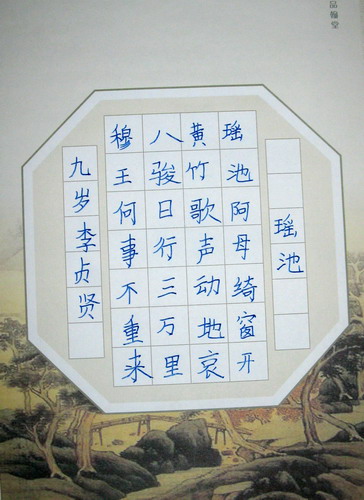 品翰堂
瑶池
瑶池阿母绮窗开
黄竹歌声动地哀
八骏日行三万里
穆王何事不重来
九岁李贞贤